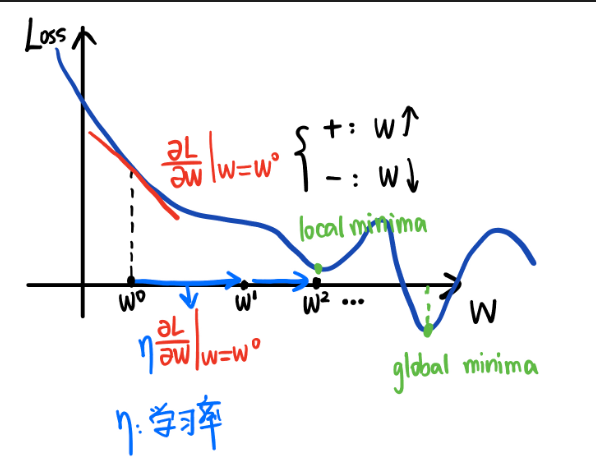 Loss
∂L/∂W|w=w⁰ { +: W↑
−: W↓
local minima
W⁰ W¹ W² ... W
η ∂L/∂W|w=w⁰
global minima
η:学习率